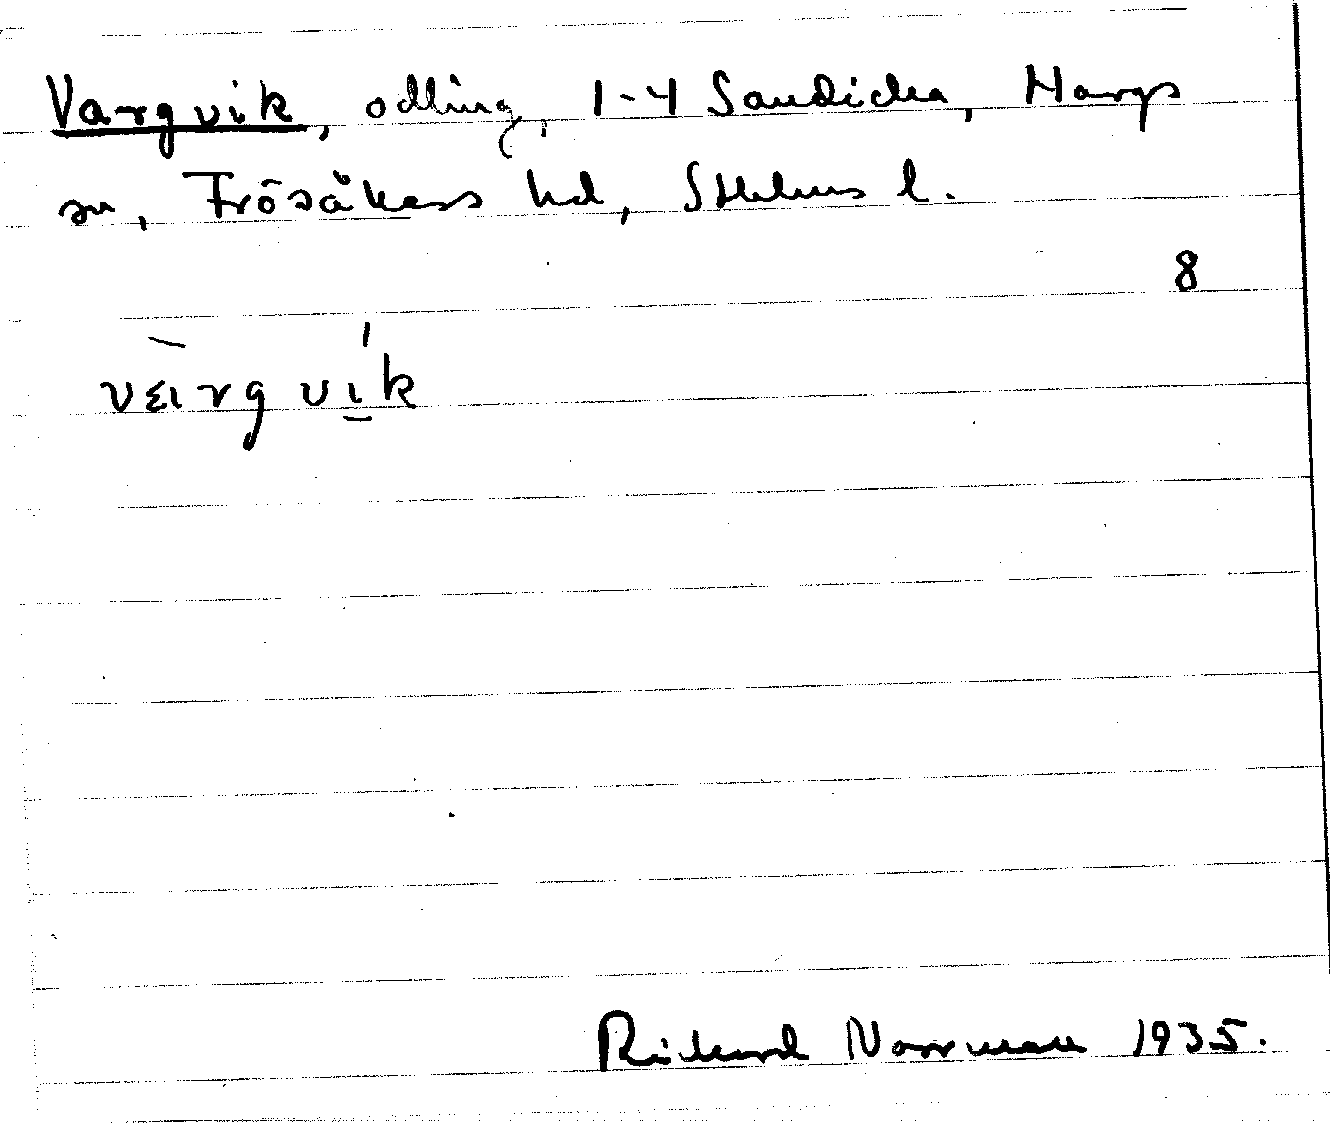 Vargvik, odling, 1-4 Sandika, Hargs
sn, Frösåkers hd, Sthlms l.
8
vɛrgvik
Rickard Norrman 1935.